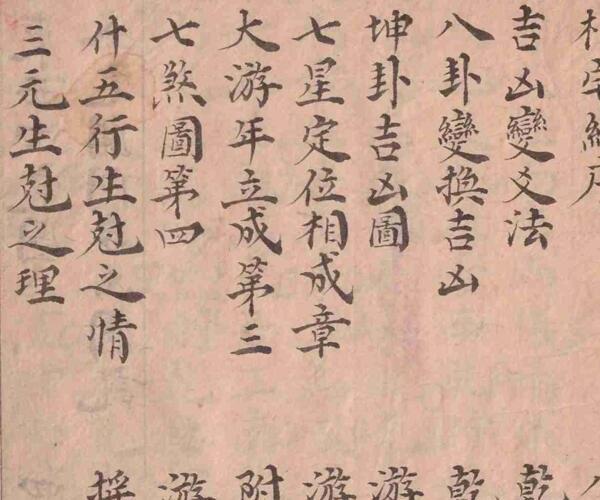 吉凶變爻法
八卦變換吉凶
坤卦吉凶圖
七星定位相成章
大游年立成第三
七煞圖第四
什五行生尅之情
三元生尅之理
乾
乾
游
游
附
游